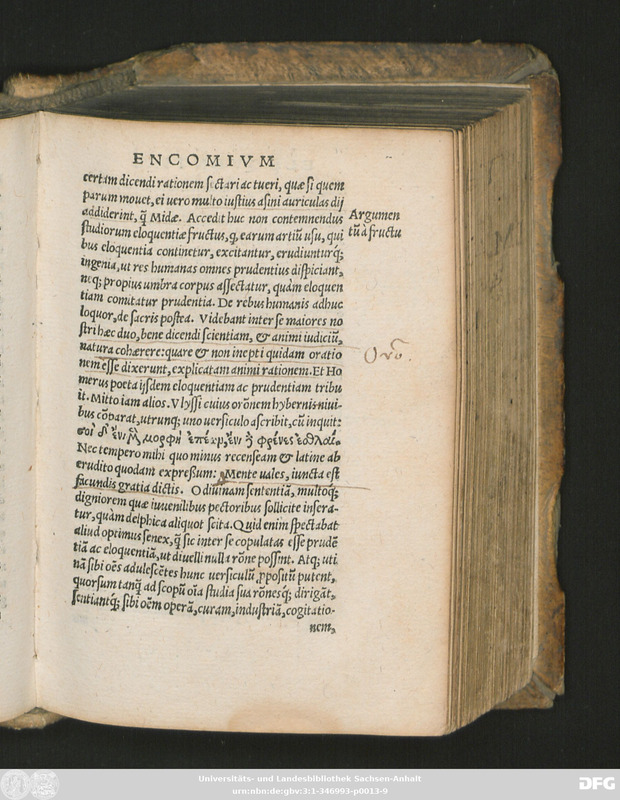 ENCOMIVM
certam dicendi rationem sectari ac tueri, quæ si quem
parum mouet, ei vero multo iustius asini auriculas dij
addiderint, q̃ Midæ. Accedit huc non contemnendus
Argumen
studiorum eloquentiæ fructus, q, earum artiũ usu, qui
tũ a fructu
bus eloquentia continetur, excitantur, erudiunturq́;
ingenia, ut res humanas omnes prudentius dispiciant,
neq; propius umbra corpus assectatur, quàm eloquen
tiam comitatur prudentia. De rebus humanis adhuc
loquor, de sacris postea. Videbant inter se maiores no
stri hæc duo, bene dicendi scientiam, & animi iudiciũ,
natura cohærere: quare & non inepti quidam oratio
nem esse dixerunt, explicatam animi rationem. Et Ho
merus poeta ijsdem eloquentiam ac prudentiam tribu
it. Mitto iam alios. Vlyssi cuius orõnem hybernis niui-
bus cõparat, utrunq; uno uersiculo ascribit, cũ inquit:
σοὶ δ' ἔνι μ̃ μορφὴ ἐπέων, ἔνι ἢ φρένες ἐσθλαὶ.
Nec tempero mihi quo minus recenseam & latine ab
erudito quodam expreßum: Mente uales, iuncta est
facundis gratia dictis. O diuinam sententiã, multoq́;
digniorem quæ iuuenilibus pectoribus sollicite insera-
tur, quàm delphica aliquot scita. Quid enim spectabat
aliud optimus senex, q̃ sic inter se copulatas esse prudẽ
tiã ac eloquentiã, ut diuelli nulla rõne possint. Atq; uti
nã sibi oẽs adulescẽtes hunc uersiculũ ꝓpositũ putent,
quorsum tanq̃ ad scopũ oĩa studia sua rõnesq́; dirigãt,
sentiantq́; sibi oẽm operã, curam, industriã, cogitatio-
nem,
Universitäts- und Landesbibliothek Sachsen-Anhalt
urn:nbn:de:gbv:3:1-346993-p0013-9
DFG